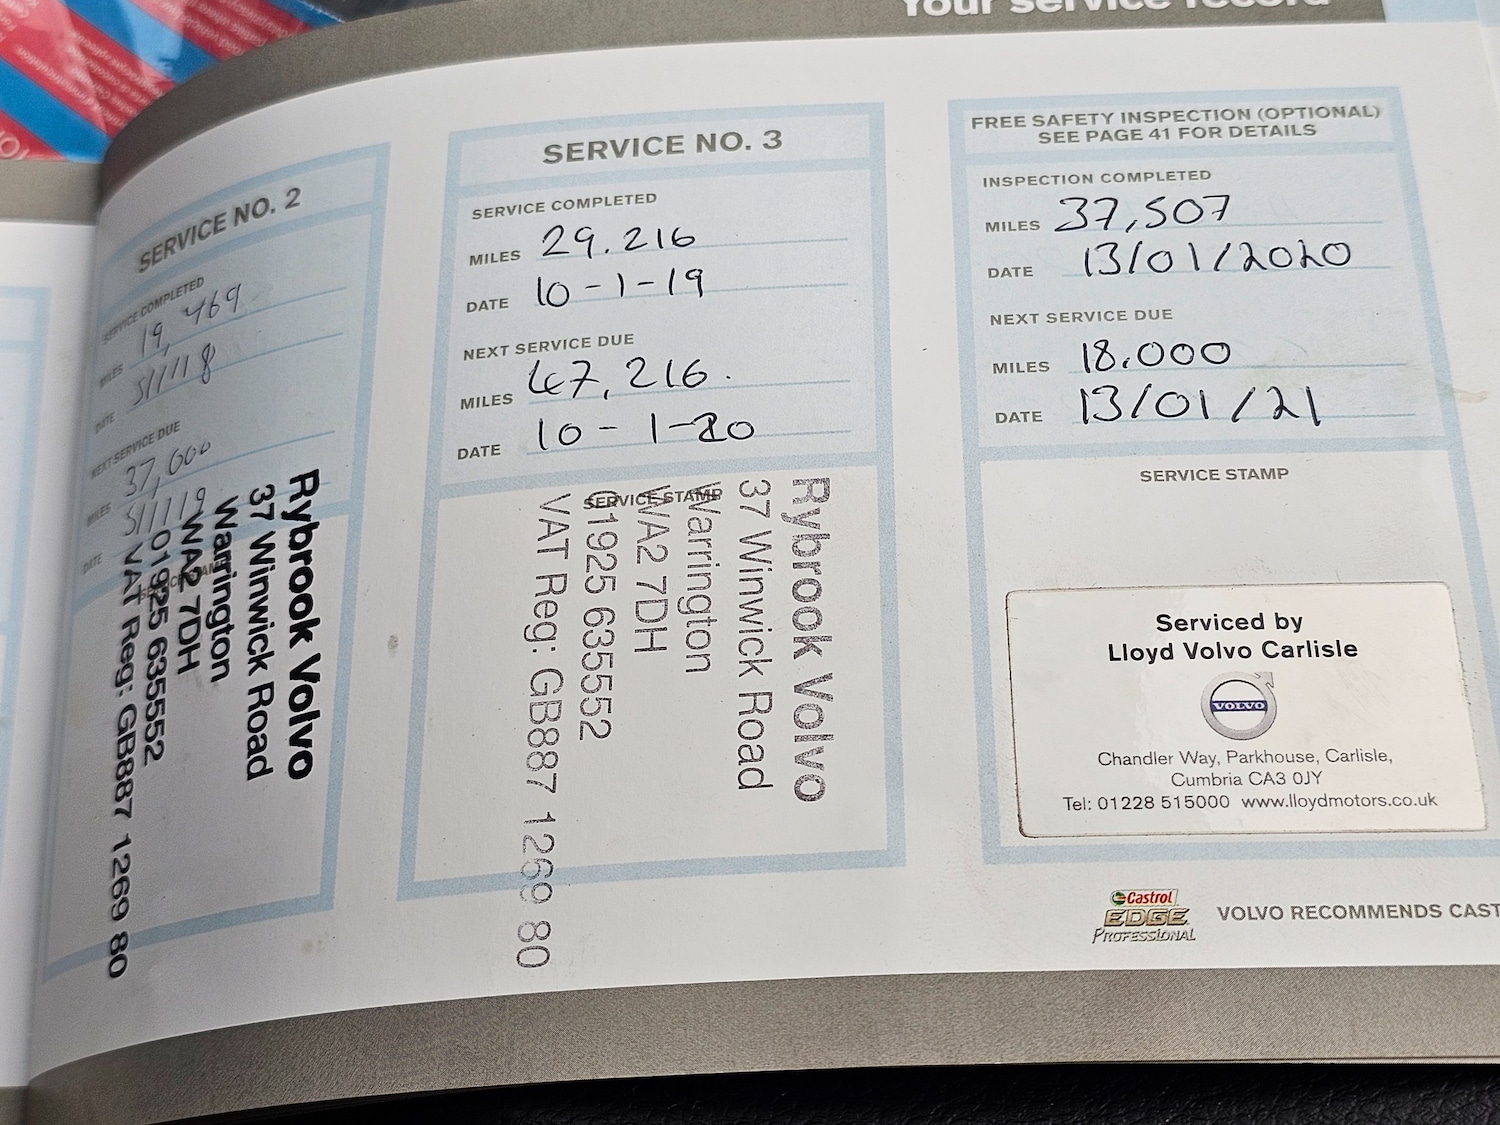 Your service record
SERVICE NO. 2
SERVICE COMPLETED
MILES 19,469
DATE 5/1/18
NEXT SERVICE DUE
MILES 37,000
DATE 5/1/19
SERVICE STAMP
Rybrook Volvo
37 Winwick Road
Warrington
WA2 7DH
01925 635552
VAT Reg: GB887 1269 80
SERVICE NO. 3
SERVICE COMPLETED
MILES 29.216
DATE 10-1-19
NEXT SERVICE DUE
MILES 47,216.
DATE 10-1-20
SERVICE STAMP
Rybrook Volvo
37 Winwick Road
Warrington
WA2 7DH
01925 635552
VAT Reg: GB887 1269 80
FREE SAFETY INSPECTION (OPTIONAL)
SEE PAGE 41 FOR DETAILS
INSPECTION COMPLETED
MILES 37,507
DATE 13/01/2020
NEXT SERVICE DUE
MILES 18.000
DATE 13/01/21
SERVICE STAMP
Serviced by
Lloyd Volvo Carlisle
VOLVO
Chandler Way, Parkhouse, Carlisle,
Cumbria CA3 0JY
Tel: 01228 515000 www.lloydmotors.co.uk
Castrol
EDGE
PROFESSIONAL
VOLVO RECOMMENDS CAST